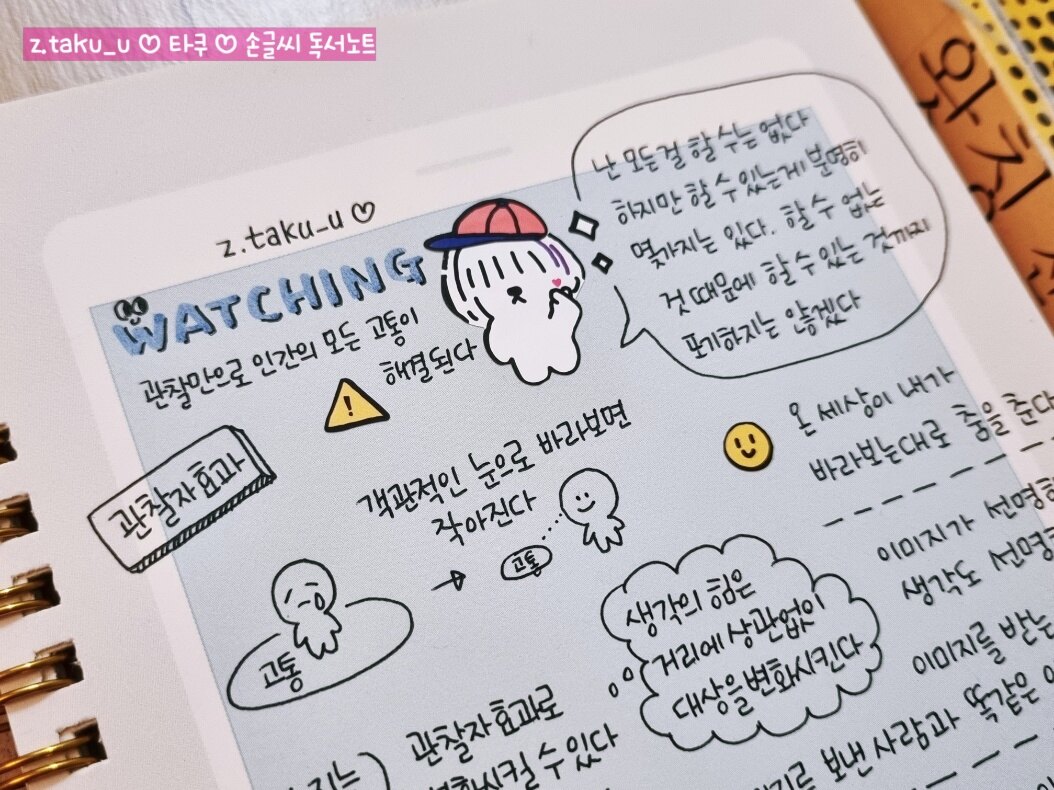 z.taku_u ♡ 타쿠 ♡ 손글씨 독서노트
z.taku_u ♡
WATCHING
관찰만으로 인간의 모든 고통이
해결된다
난 모든걸 할 수는 없다
하지만 할 수 있는게 분명히
몇가지는 있다. 할 수 없는
것 때문에 할 수 있는 것까지
포기하지는 않겠다
관찰자 효과
객관적인 눈으로 바라보면
작아진다
고통
고통
온 세상이 내가
바라보는대로 춤을 춘다
이미지가 선명
생각도 선명
이미지를 받는
생각의 힘은
거리에 상관없이
대상을 변화시킨다
관찰자 효과로
시킬 수 있다
보낸 사람과 똑같은
왓칭